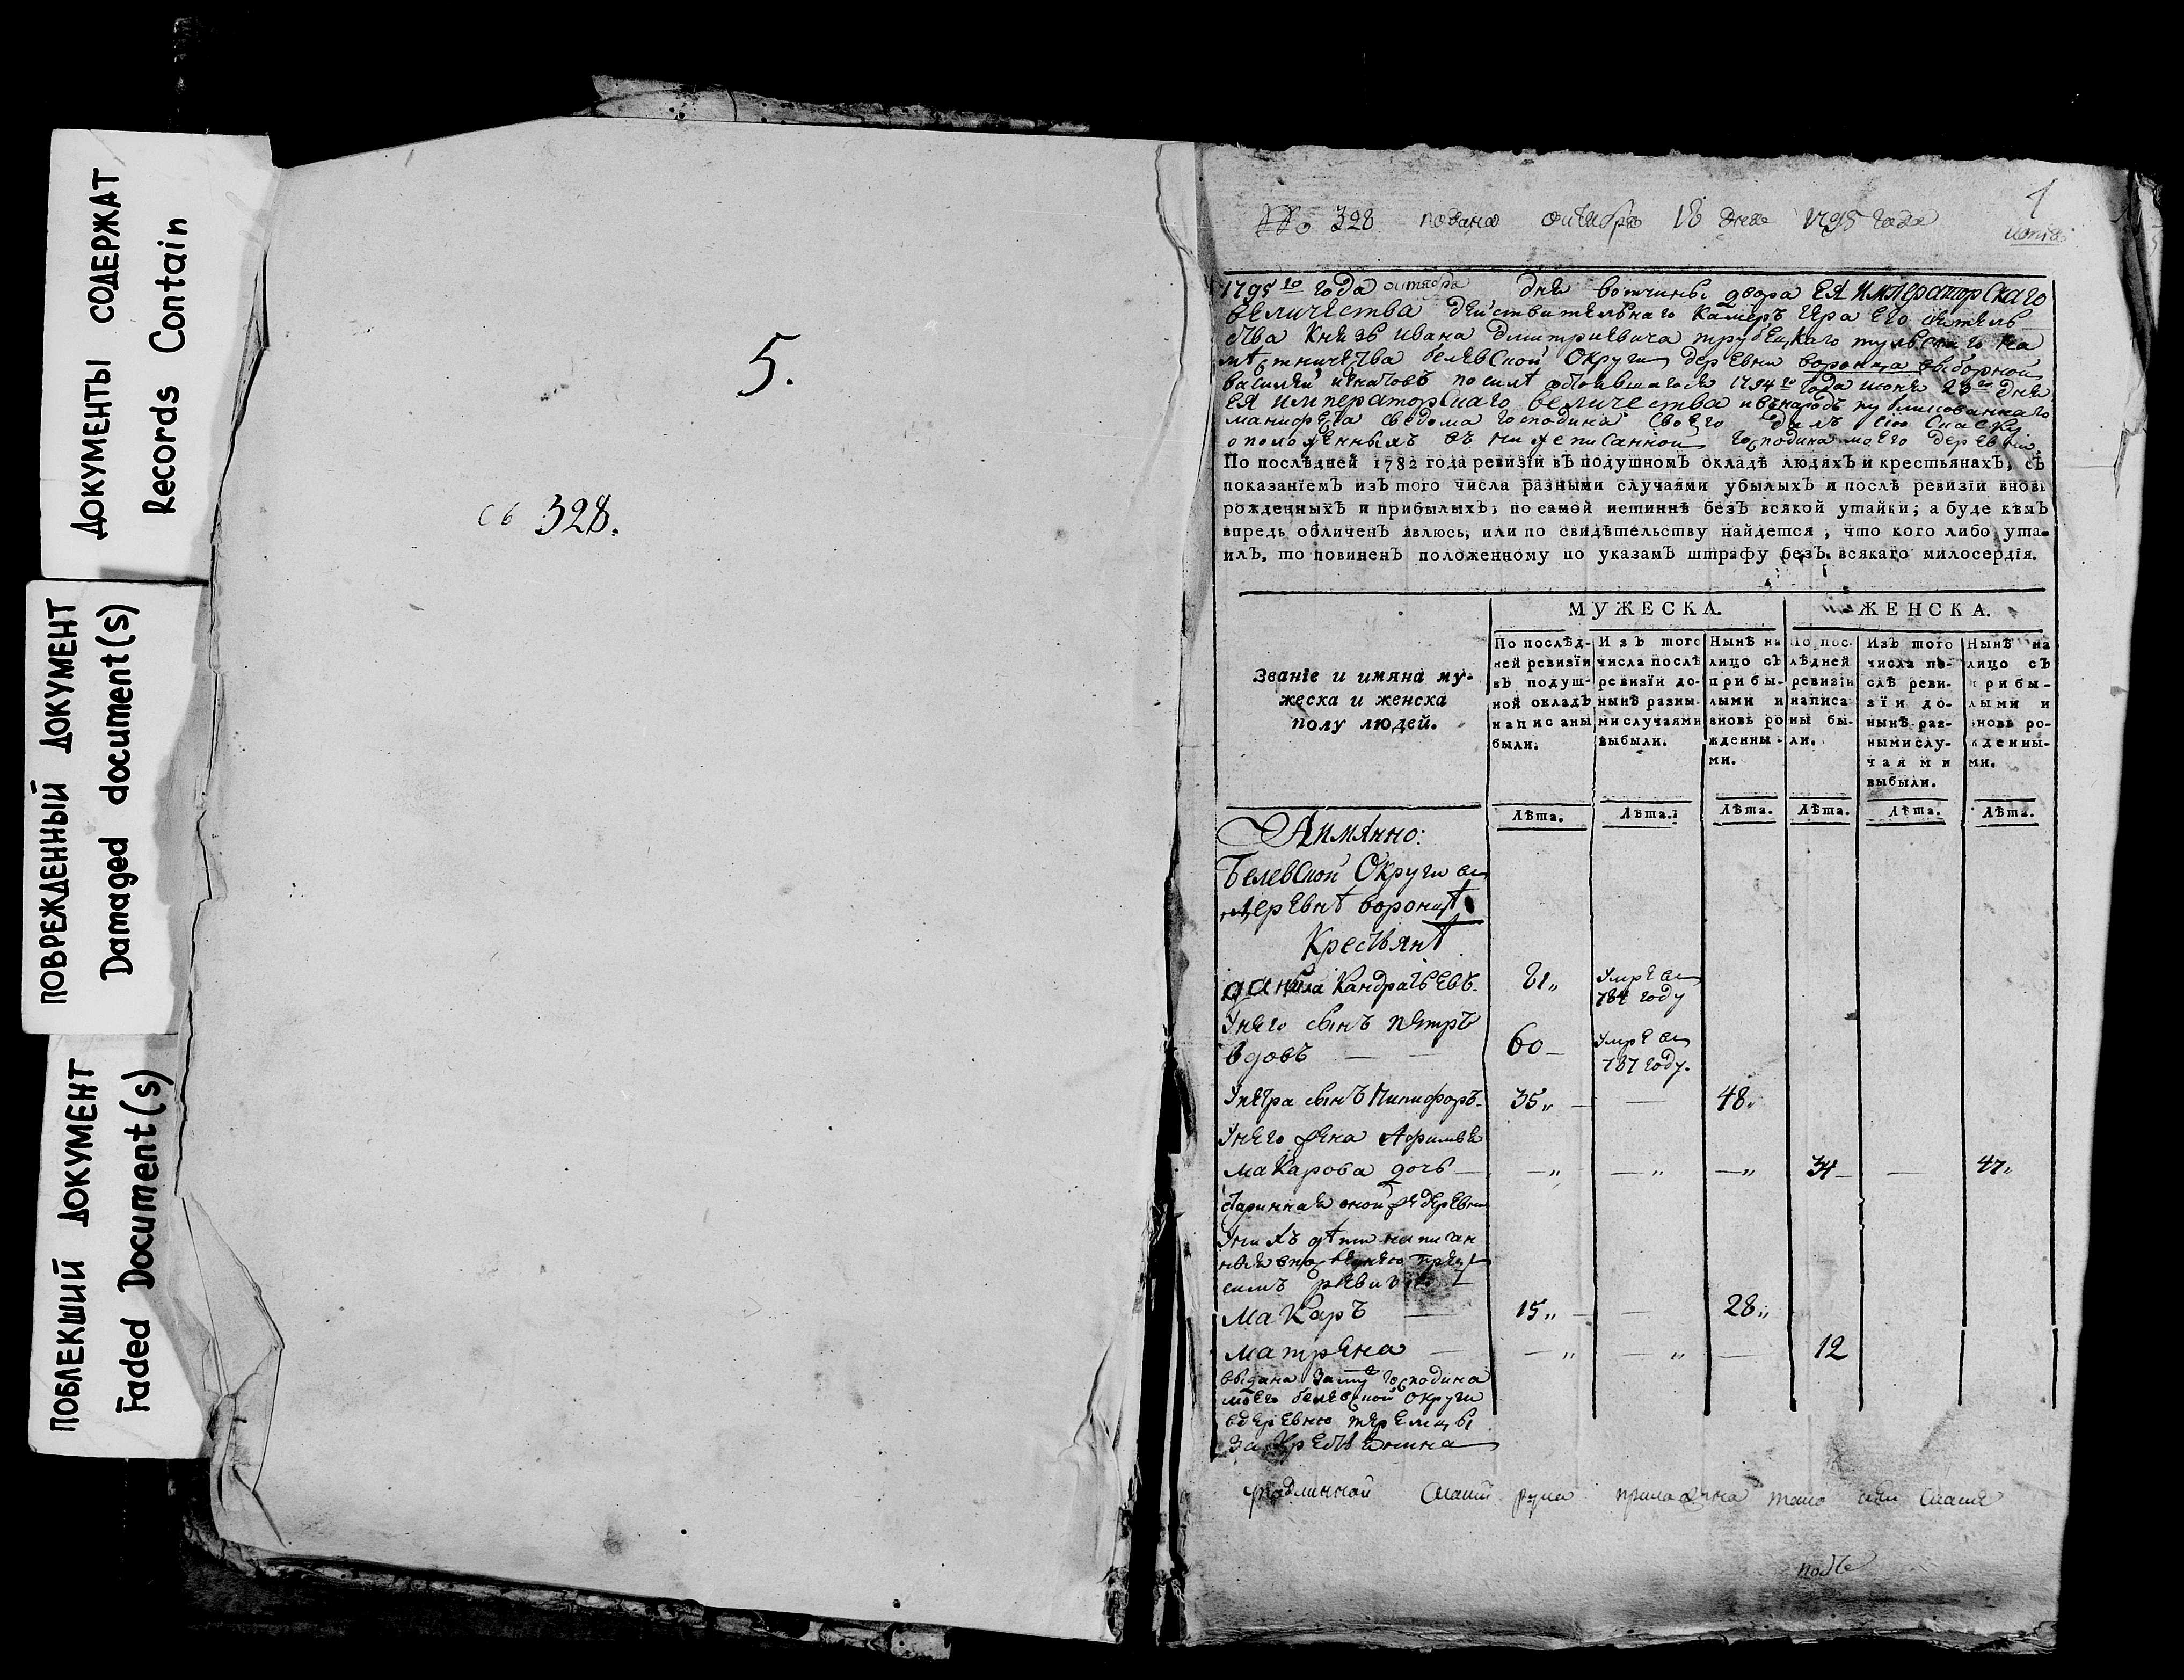 ДОКУМЕНТЫ СОДЕРЖАТ
Records Contain
ПОВРЕЖДЕННЫЙ ДОКУМЕНТ
Damaged document(s)
ПОБЛЕКШИЙ ДОКУМЕНТ
Faded Document(s)
5.
с 6 328.
1
№ 328 подана октября 18 дня 1795 года
копія
1795го года октября дня вотчины двора ЕЯ ИМПЕРАТОРСКАГО
величества действительнаго камеръ гера его сиятель
ства князь ивана дмитриевича трубецкаго тульскаго на
мѣстничества белевской округи деревни воронца выборной
василей игнатовъ по силѣ состоявшагося 1794го года июня 23го дня
ЕЯ императорскаго величества и въ народъ публикованнаго
манифеста с ведома господина своего далъ сию скаску
о положенныхъ въ нижеписанной господина моего деревни
По послѣдней 1782 года ревизїи въ подушномъ окладѣ людяхъ и крестьянахъ, съ
показанїемъ изъ того числа разными случаями убылыхъ и послѣ ревизїи вновь
рожденныхъ и прибылыхъ, по самой истиннѣ безъ всякой утайки; а буде кѣмъ
впредь обличенъ явлюсь, или по свидѣтельству найдется, что кого либо ута-
илъ, то повиненъ положенному по указамъ штрафу безъ всякаго милосердїя.
МУЖЕСКА. ЖЕНСКА.
Званїе и имяна му-
жеска и женска
полу людей.
По послѣд-
ней ревизїи
въ подуш-
ной окладъ
написаны
были.
Изъ того
числа послѣ
ревизїи до-
нынѣ разны-
ми случаями
выбыли.
Нынѣ на
лицо съ
прибы-
лыми и
вновь ро
жденны-
ми.
По пос-
лѣдней
ревизїи
написа
ны бы-
ли.
Изъ того
числа по-
слѣ реви-
зїи до-
нынѣ раз-
ными слу-
чаями
выбыли.
Нынѣ на
лицо съ
прибы-
лыми и
вновь ро-
жденны-
ми.
Лѣта. Лѣта. Лѣта. Лѣта. Лѣта. Лѣта.
А имянно:
Белевской Округи в
деревнѣ воронцѣ
Крестьянѣ
данила Кандратьевъ. 81 умре в
784 году
у него сынъ петръ
вдовъ — — 60 — умре в
787 году.
у петра сынъ Никифоръ 35 — — 48
у него жена Афимья
макарова дочь — — — — 34 — 47
старинная оной же деревни
у нихъ дѣти написан
ревизіею
Макаръ — 15 — — 28
матрена — — — — 12
выдана замуж господина
моего белевской округи
в деревню теремцы
за крестьянина
подлинной скаски рука приложена тако